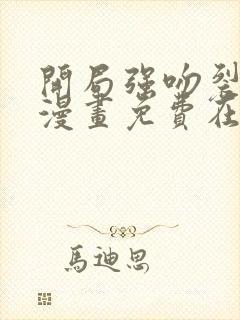 開局强吻裂
漫畫免費在
馬迪恩